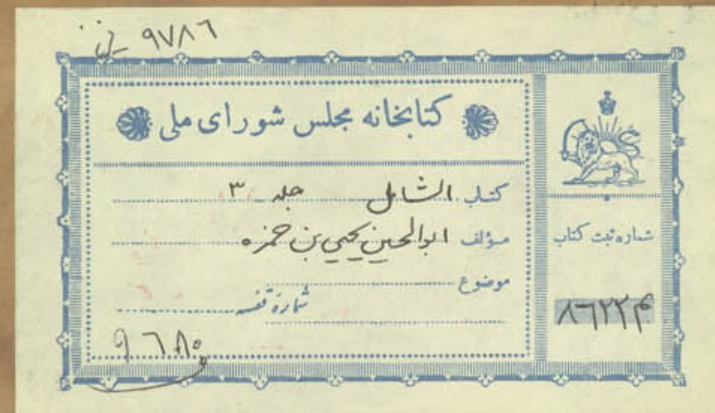 ۹۷۸۶
کتابخانه مجلس شورای ملی
کتاب الشامل جلد ۳
مؤلف ابوالحسین یحیی بن حمزه
موضوع
شمارۀ قفسه
شماره ثبت کتاب
۸۶۲۲۴
۹۶۸۰